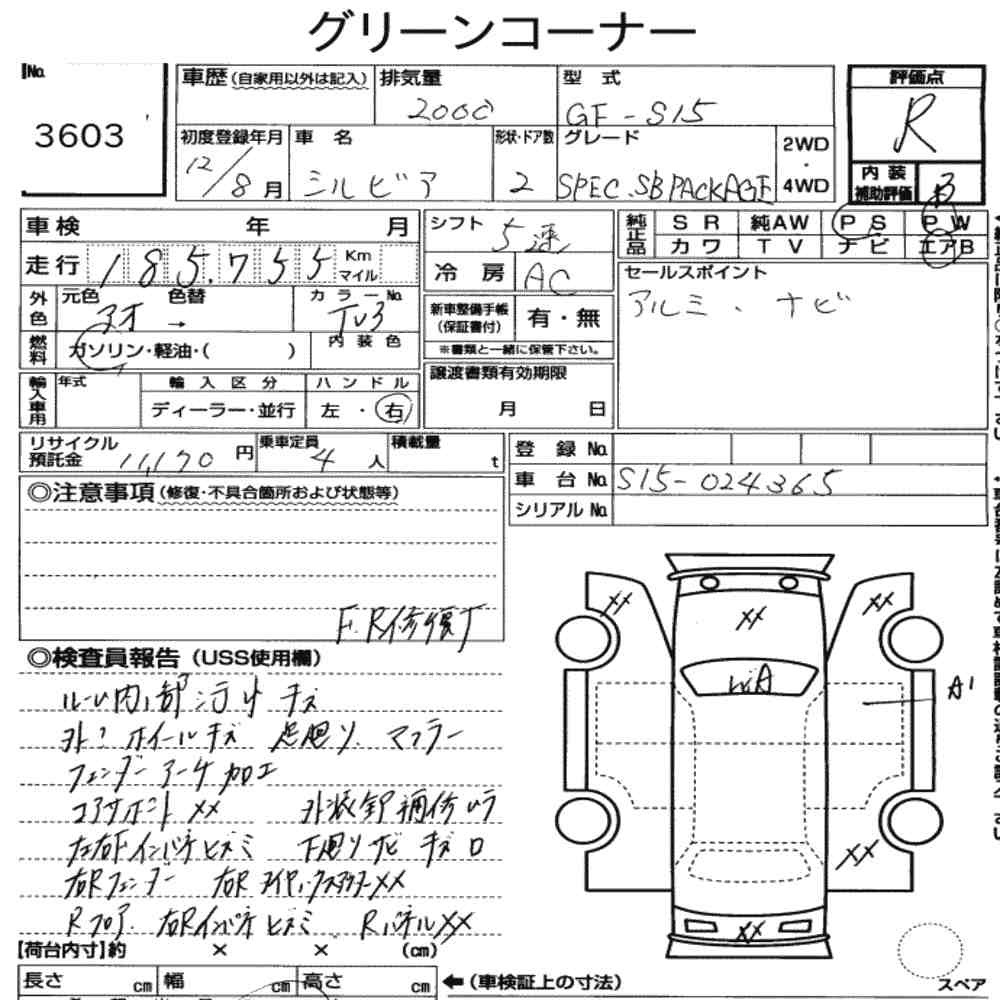 グリーンコーナー
No.
3603
車歴 (自家用以外は記入)
排気量
2000
型 式
GF-S15
評価点
R
初度登録年月
12/8月
車 名
シルビア
形状・ドア数
2
グレード
SPEC.SB PACKAGE
2WD
・
4WD
内 装
補助評価
B
車検 年 月
シフト
5速
純正品
S R 純AW P S P W
カ ワ T V ナ ビ エアB
走行 185,755 Km マイル
冷 房 AC
セールスポイント
アルミ、ナビ
外色
元色 色替 カラーNo.
→ TV3
新車整備手帳
(保証書付)
有・無
※書類と一緒に保管下さい。
燃料
ガソリン・軽油・( )
内 装 色
譲渡書類有効期限
月 日
輸入車用
年式
輸 入 区 分
ディーラー・並行
ハ ン ド ル
左 ・ 右
リサイクル
預託金 11,170 円
乗車定員
4 人
積載量
t
登 録 No.
車 台 No. S15-024365
シリアル No.
◎注意事項 (修復・不具合箇所および状態等)
F.R修復了
◎検査員報告 (USS使用欄)
ルーム内ノ部 シート キズ
外、ホイールキズ 足廻リ、マフラー
フェンダーアーチ加工
コアサポート XX 外装 補修
左右Fインパネヒズミ 下廻リサビ キズ
右Rフェンダー 右R タイヤハウスアウターXX
Rフロア 右Rインパネ ヒズミ Rパネル XX
XX
XX
XX
WA
A1
XX
XX
【荷台内寸】約 × × (cm)
長さ cm 幅 cm 高さ cm
← (車検証上の寸法)
スペア